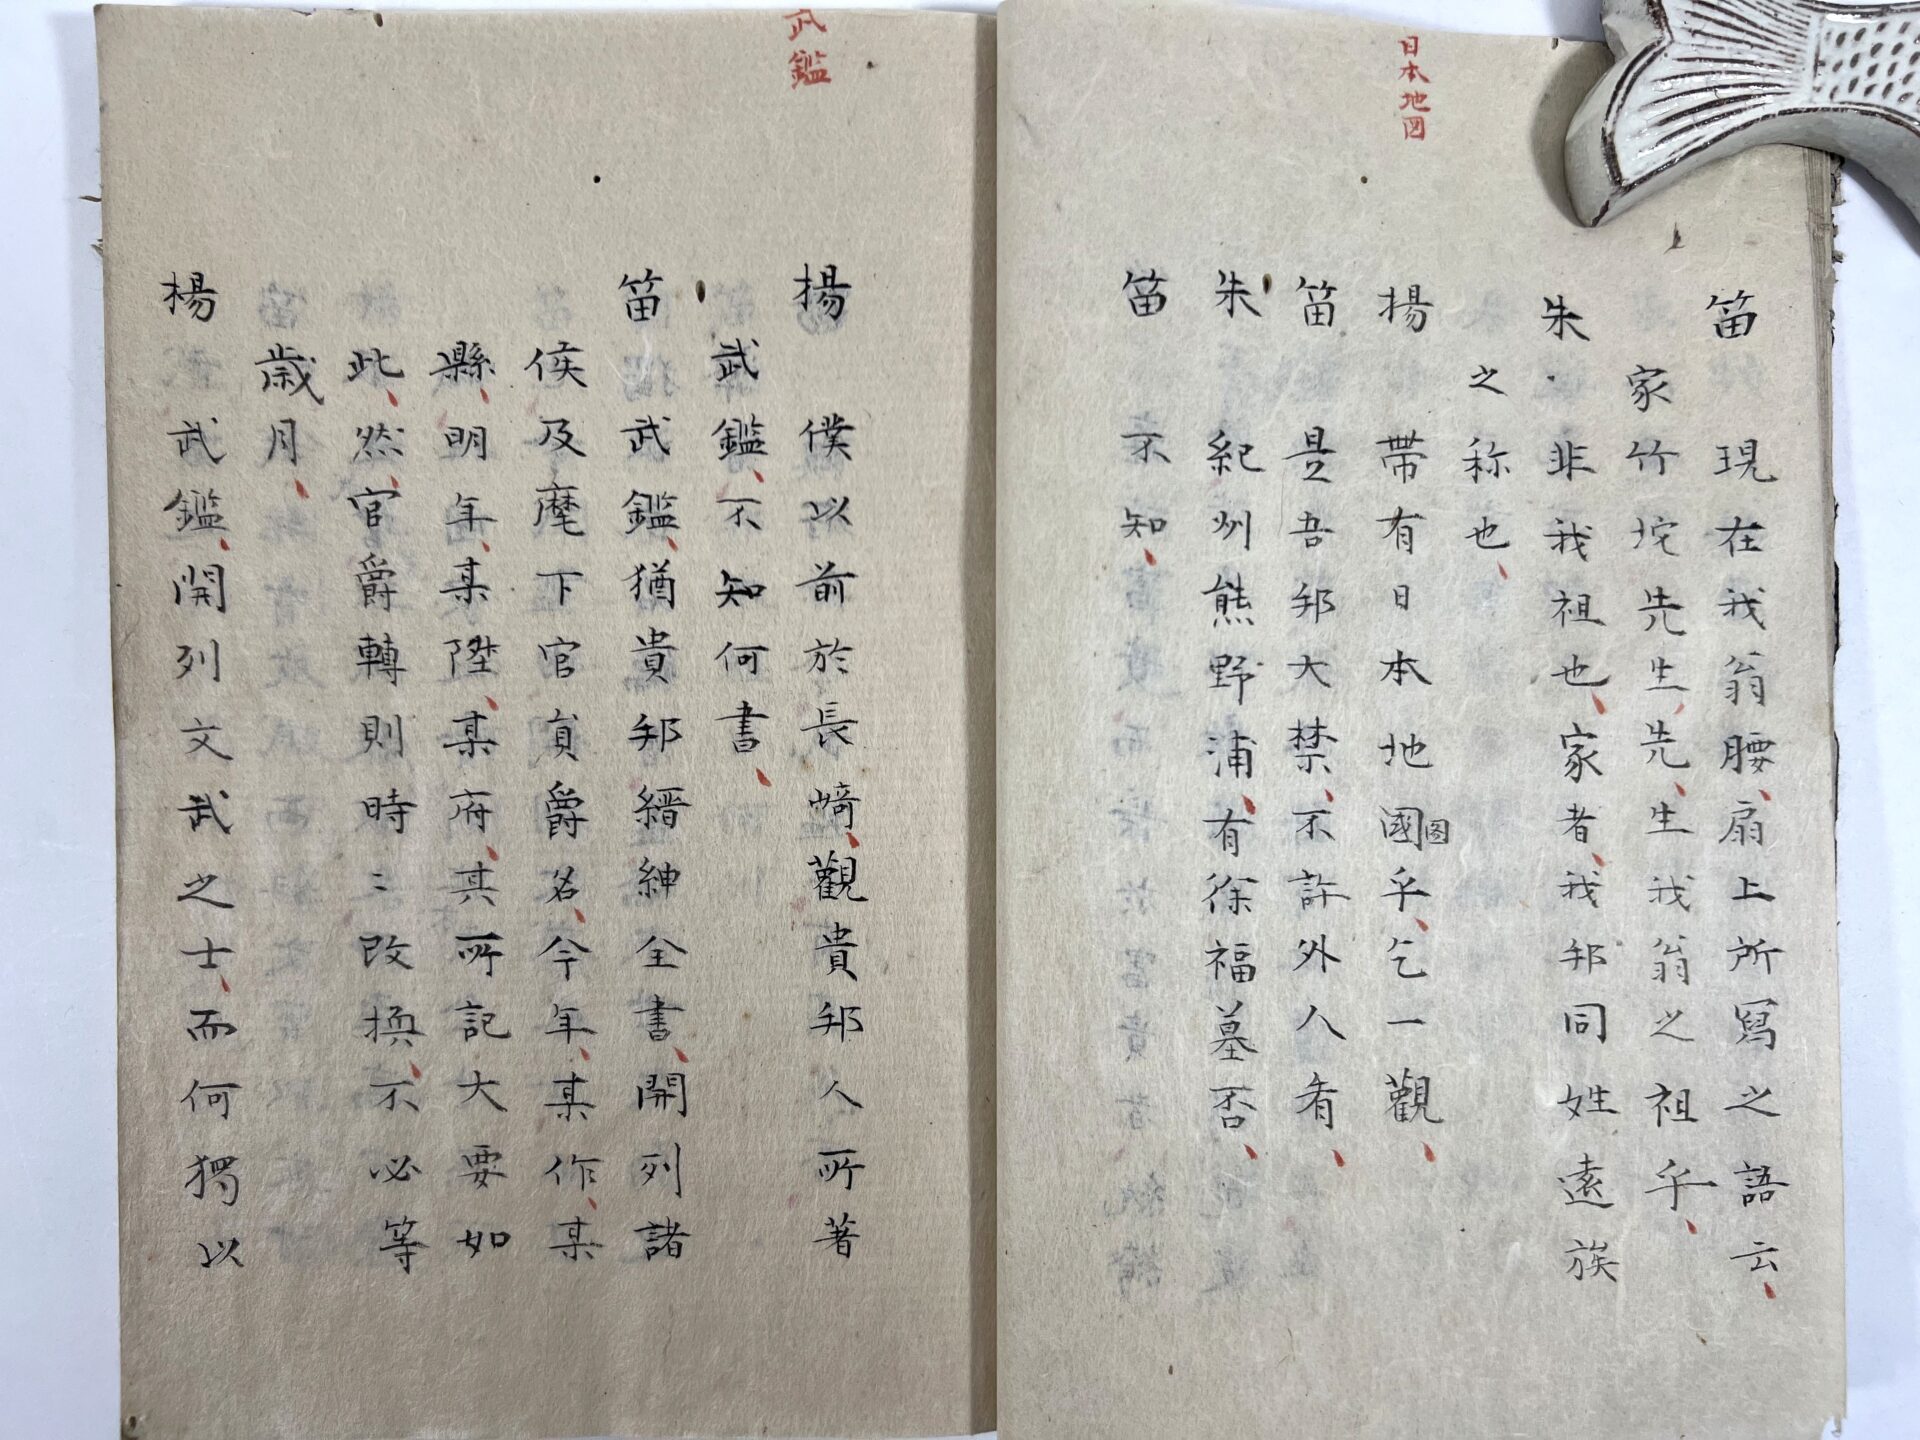 日本地図
笛 現在我翁腰、扇上所寫之語云、
家竹坨先生、先、生我翁之祖乎、
朱 非我祖也、家者、我邦同姓遠族
之称也、
楊 帶有日本地國圖乎、乞一觀、
笛 是吾邦大禁、不許外人看、
朱 紀州熊野浦、有徐福墓否、
笛 不知、
武鑑
楊 僕以前於長﨑、觀貴邦人所著
武鑑、不知何書、
笛 武鑑、猶貴邦縉紳全書、開列諸
侯及麾下官員爵名、今年、某作、某
縣、明年、某陞、某府、其所記大要如
此、然、官爵轉則時〻改換、不必等
歲月、
楊 武鑑、開列文武之士、而何獨以